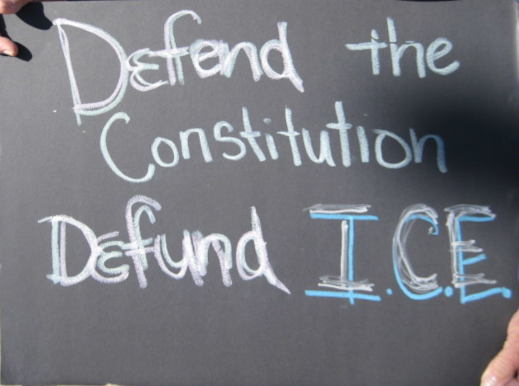 Defend the
Constitution
Defund I.C.E.